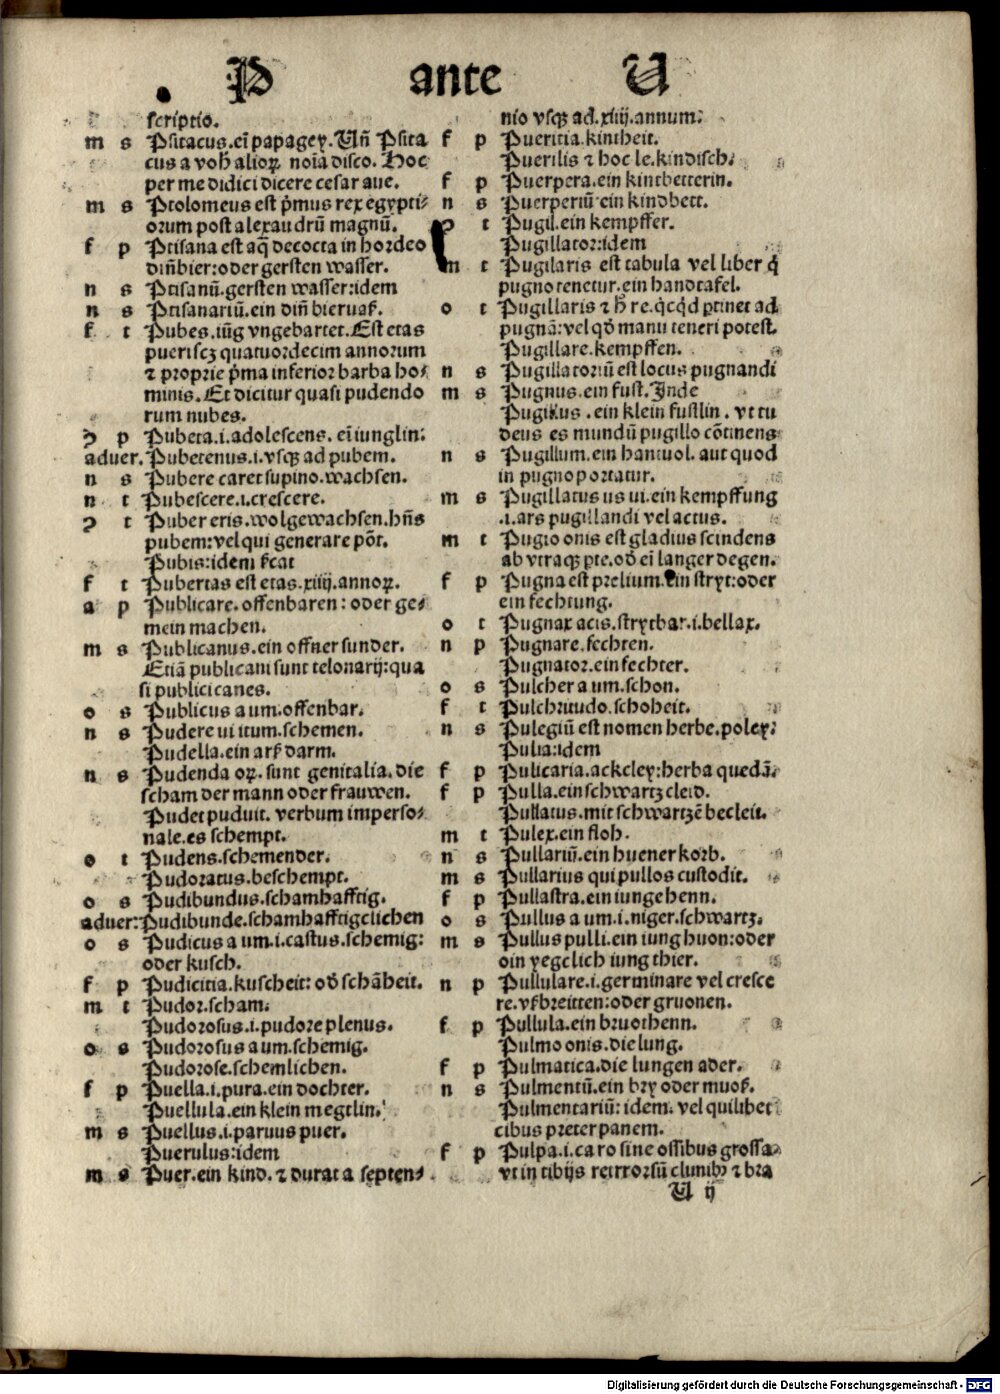 P ante U
scriptio.
m s Psitacus.eī papagey. Vn̄ Psita
cus a vob̄ alioꝝ noīa disco. Hoc
per me didici dicere cesar aue.
m s Ptolomeus est p̄mus rex egypti-
orum post alexandrū magnū.
f p Ptisana est aq̄ decocta in hordeo
din̄bier:oder gersten wasser.
n s Ptisanū.gersten wasser:idem
n s Ptisanariū.ein din̄ bieruaß.
f t Pubes.iūg vngebartet.Est etas
pueriscꝫ quatuordecim annorum
⁊ proprie p̄ma inferior barba ho-
minis. Et dicitur quasi pudendo
rum nubes.
ꝯ p Pubeta.i.adolescens. eī iunglin:
aduer. Pubetenus.i.vsqꝫ ad pubem.
n s Pubere caret supino.wachsen.
n t Pubescere.i.crescere.
ꝯ t Puber eris.wolgewachsen.hn̄s
pubem:vel qui generare pōt.
Pubis:idem
f t Pubertas est etas.xiiij.annoꝝ.
a p Publicare. offenbaren: oder ge-
mein machen.
m s Publicanus.ein offner sunder.
Etiā publicani sunt telonarij:qua
si publici canes.
o s Publicus a um.offenbar.
n s Pudere ui itum.schemen.
Pudella.ein arß darm.
n s Pudenda oꝝ. sunt genitalia.die
scham der mann oder frauwen.
Pudet puduit. verbum imperso-
nale.es schempt.
o t Pudens.schemender.
Pudoratus.beschempt.
o s Pudibundus.schamhafftig.
aduer: Pudibunde.schamhafftigclichen
o s Pudicus a um.i.castus.schemig:
oder kusch.
f p Pudicitia.kuscheit: od̄ schāheit.
m t Pudor.scham.
Pudorosus.i.pudore plenus.
o s Pudorosus a um.schemig.
Pudorose.schemlichen.
f p Puella.i.pura.ein dochter.
Puellula.ein klein megtlin.
m s Puellus.i.paruus puer.
Puerulus:idem
m s Puer.ein kind. ⁊ durat a septen-
nio vsqꝫ ad.xiiij.annum:
f p Pueritia.kintheit.
Puerilis ⁊ hoc le.kindisch.
f p Puerpera.ein kintbetterin.
n s Puerperiū ein kindbett.
ꝯ t Pugil.ein kempffer.
Pugillator:idem
m t Pugilaris est tabula vel liber q̄
pugno tenetur.ein handtafel.
o t Pugillaris ⁊ h̄ re.q̄cq̄d ꝑtinet ad
pugnā:vel qd̄ manu teneri potest.
Pugillare.kempffen.
n s Pugillatoriū est locus pugnandi
m s Pugnus.ein fust. Inde
Pugillus .ein klein fustlin . vt tu
deus es mundū pugillo cōtinens
n s Pugillum.ein hantuol. aut quod
in pugno portatur.
m s Pugillatus us ui.ein kempffung
.i.ars pugillandi vel actus.
m t Pugio onis est gladius scindens
ab vtraqꝫ ꝑte.od̄ eī langer degen.
f p Pugna est prelium.Ein stryt:oder
ein fechtung.
o t Pugnax acis.strytbar.i.bellax.
n p Pugnare.fechten.
Pugnator.ein fechter.
o s Pulcher a um.schon.
f t Pulchritudo.schoheit.
n s Pulegiū est nomen herbe.poley:
Pulia:idem
f p Pulicaria.ackeley:herba quedā.
f p Pulla.ein schwartz cleid.
Pullatus.mit schwartzē becleit.
m t Pulex.ein floh.
n s Pullariū.ein huener korb.
m s Pullarius qui pullos custodit.
f p Pullastra.ein iunge henn.
o s Pullus a um.i.niger.schwartz.
m s Pullus pulli.ein iung huon:oder
oin yegclich iung thier.
n p Pullulare.i.germinare vel cresce
re.vßbreitten:oder gruonen.
f p Pullula.ein bruothenn.
Pulmo onis.die lung.
f p Pulmatica.die lungen ader.
n s Pulmentū.ein bry oder muoß.
Pulmentariū: idem. vel quilibet
cibus preter panem.
f p Pulpa.i.caro sine ossibus grossa
vt in tibijs retrorsū clunibꝫ ⁊ bra
U ij
Digitalisierung gefördert durch die Deutsche Forschungsgemeinschaft - DFG